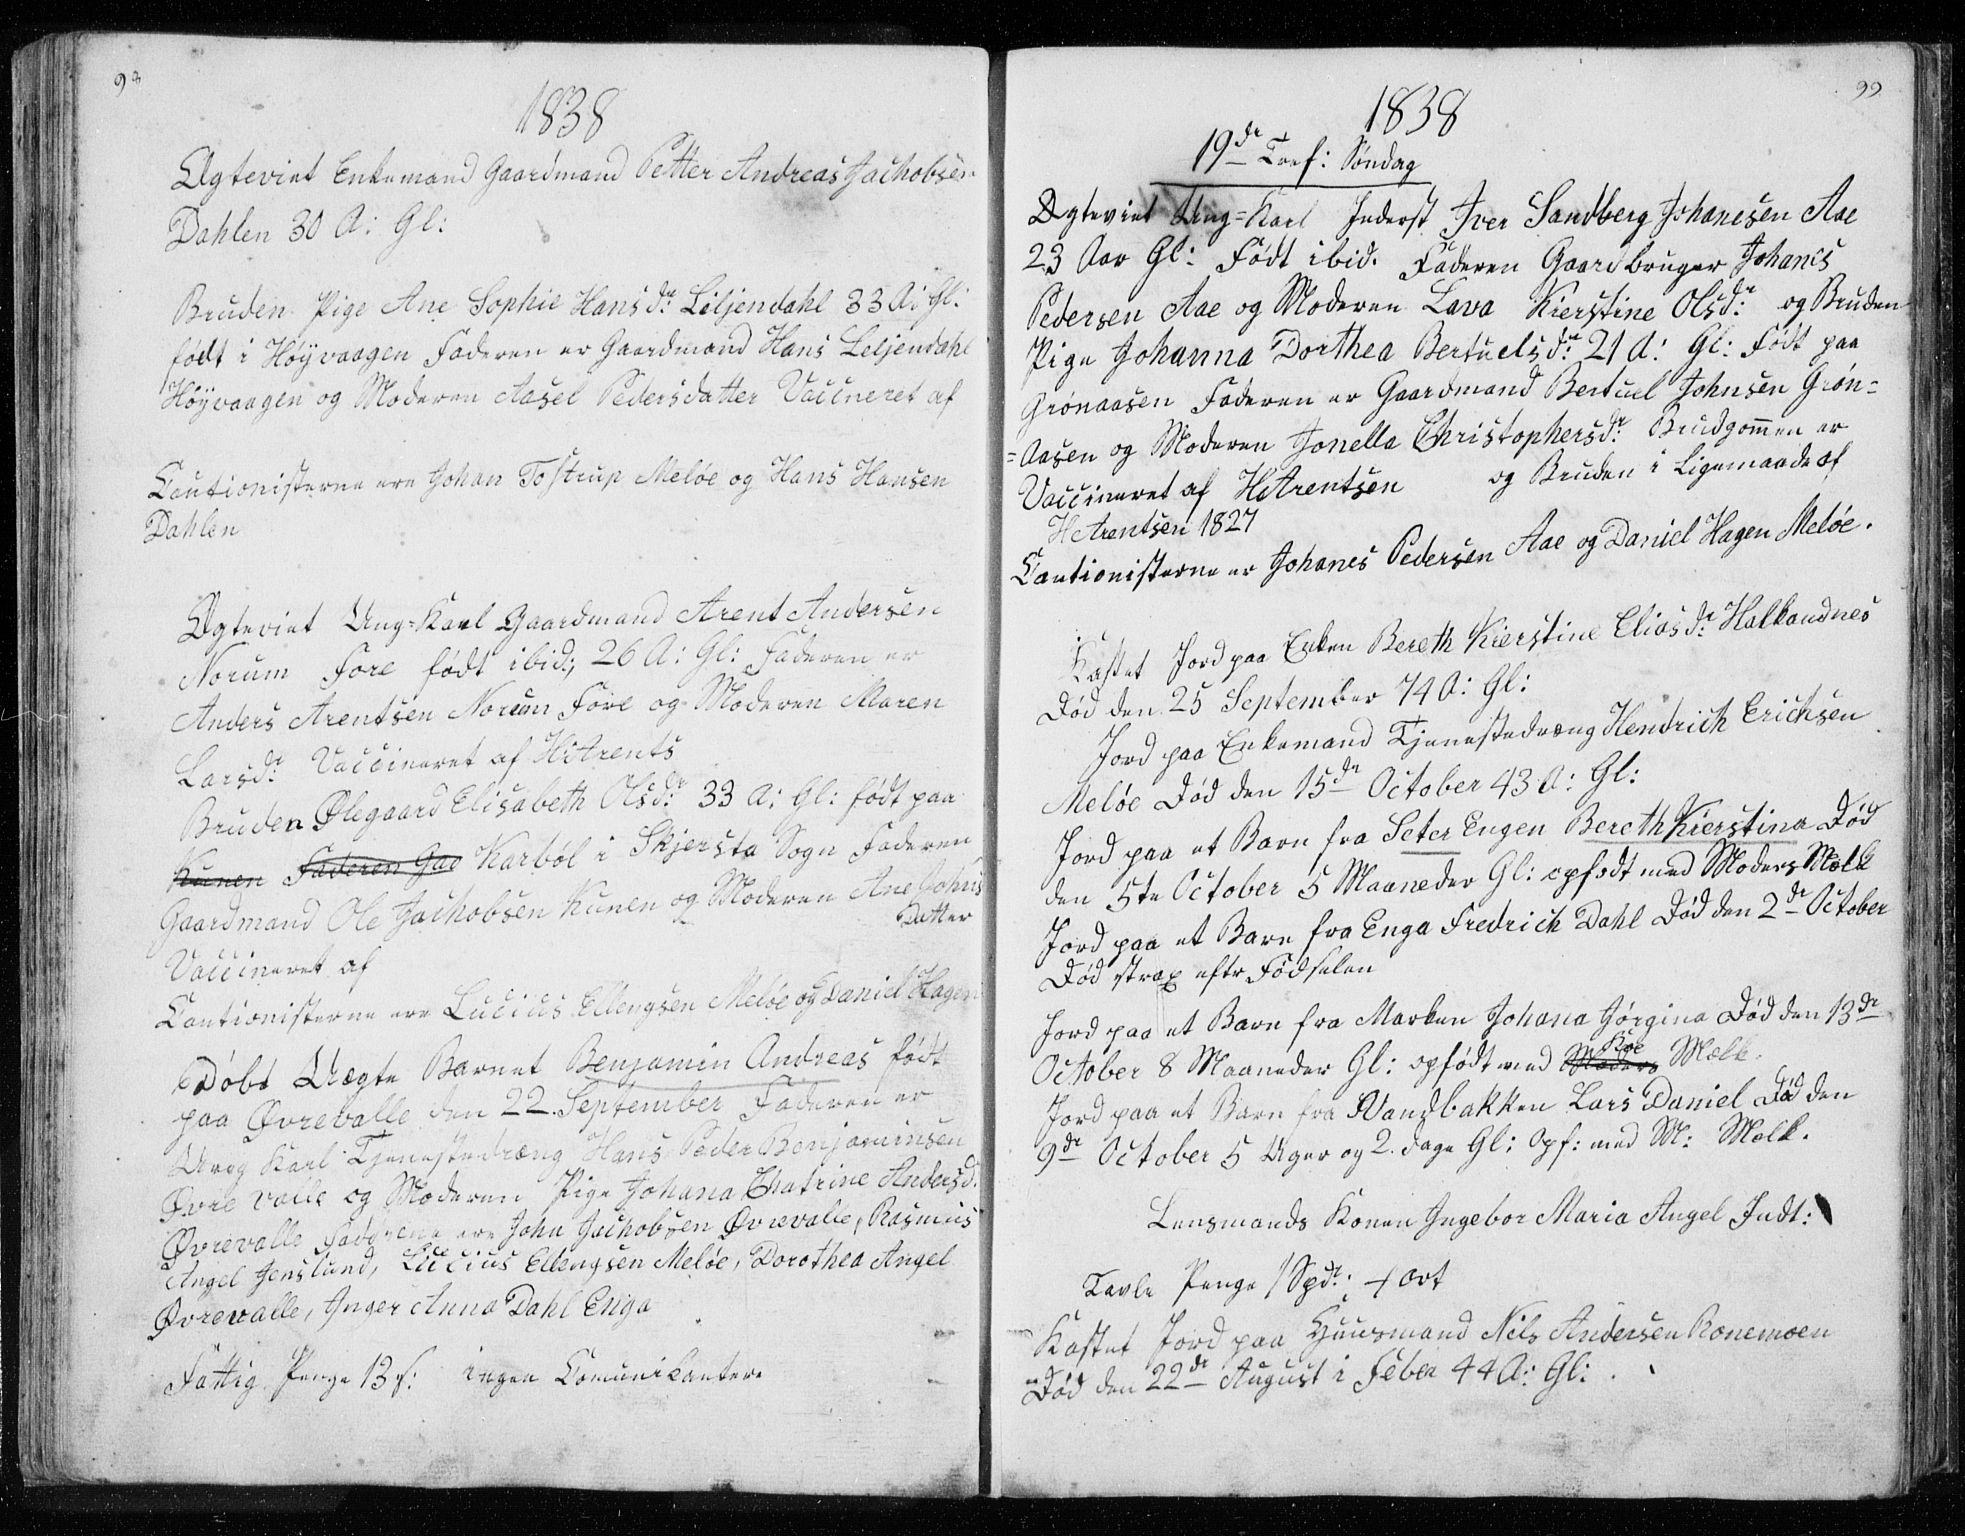 98
1838
Ægteviet Enkemand Gaardmand Petter Andreas Jachobsen
Dahlen 30 A: Gl:
Bruden Pige Ane Sophie Hans dr: Liljendahl 33 A: Gl:
født i Høÿvaagen Faderen er Gaardmand Hans Leljendahl
Høÿvaagen og Moderen Aasel Pedersdatter Vaccineret af
Cautionisterne ere Johan Tostrup Meløe og Hans Hansen
Dahlen
Ægteviet Ung=Karl Gaardmand Arent Andersen
Norum Fore født ibid:, 26 A: Gl: Faderen er
Anders Arentsen Norum Fore og Moderen Maren
Larsdr: Vaccineret af HArents
Bruden Ølegaard Elisabeth Olsdr: 33 A: Gl: født paa
Kunen Faderen Gaa Karbøl i Skjersta Sogn Faderen
Gaardmand Ole Jachobsen Kunen og Moderen Ane Johns
Datter
Vaccineret af
Cautionisterne ere Lucius Ellengsen Meløe og Daniel Hagen
Døbt Uægte Barnet Benjamin Andreas født
paa Øvrevalle den 22 September Faderen er
Ung Karl Tjenestedræng Hans Peder Benjaminsen
Øvre valle og Moderen Pige Johana Chatrine Andersd.
Øvrevalle Fadderne ere John Jachobsen Øvrevalle, Rasmus
Angel Jenslund, Lucius Ellengsen Meløe, Dorothea Angel
Øvrevalle, Inger Anna Dahl Enga
Fattig Penge 13 s: ingen Comunicanter.
99
1838
19de Tref: Søndag
Ægteviet Ung=Karl Inderst Iver Sandberg Johanesen Aae
23 Aar Gl: Født ibid. Faderen Gaardbruger Johanes
Pedersen Aae og Moderen Lava Kierstine Olsdr: og Bruden
Pige Johanna Dorthea Bertuelsdr: 21 A: Gl: Født paa
Grønaasen Faderen er Gaardmand Bertuel Johnsen Grøn=
=Aasen og Moderen Jonella Christophersdr: Brudgom̄en er
Vaccineret af HArentsen og Bruden i Ligemaade af
HArentsen 1827
Cautionisterne er Johanes Pedersen Aae og Daniel Hagen Meløe.
Kastet Jord paa Enken Bereth Kierstine Elias dr: Halkandnes
Død den 25 September 74 A: Gl:
Jord paa Enkemand Tjenestedræng Hendrich Erichsen
Meløe Død den 15de October 43 A: Gl:
Jord paa et Barn fra Seter Engen Bereth Kierstina Død
den 5te October 5 Maaneder Gl: opfødt med Moders Melk
Jord paa et Barn fra Enga Fredrich Dahl Død den 2de October
Død strax eftr Fødselen
Jord paa et Barn fra Marken Johana Jørgina Død den 13de
Koe
October 8 Maaneder Gl: opfødt med Moders Mælk.
Jord paa et Barn fra Vandbakken Lars Daniel Død den
9de October 5 Uger og 2. dage Gl: Opf: med M: Melk.
Lensmands Konen Ingebor Maria Angel Indt:
Tavle Penge 1 Spdr: + Ort
Kastet Jord paa Huusmand Nils Andersen Ronemoen
Død den 22de August i Feber 44 A: Gl: